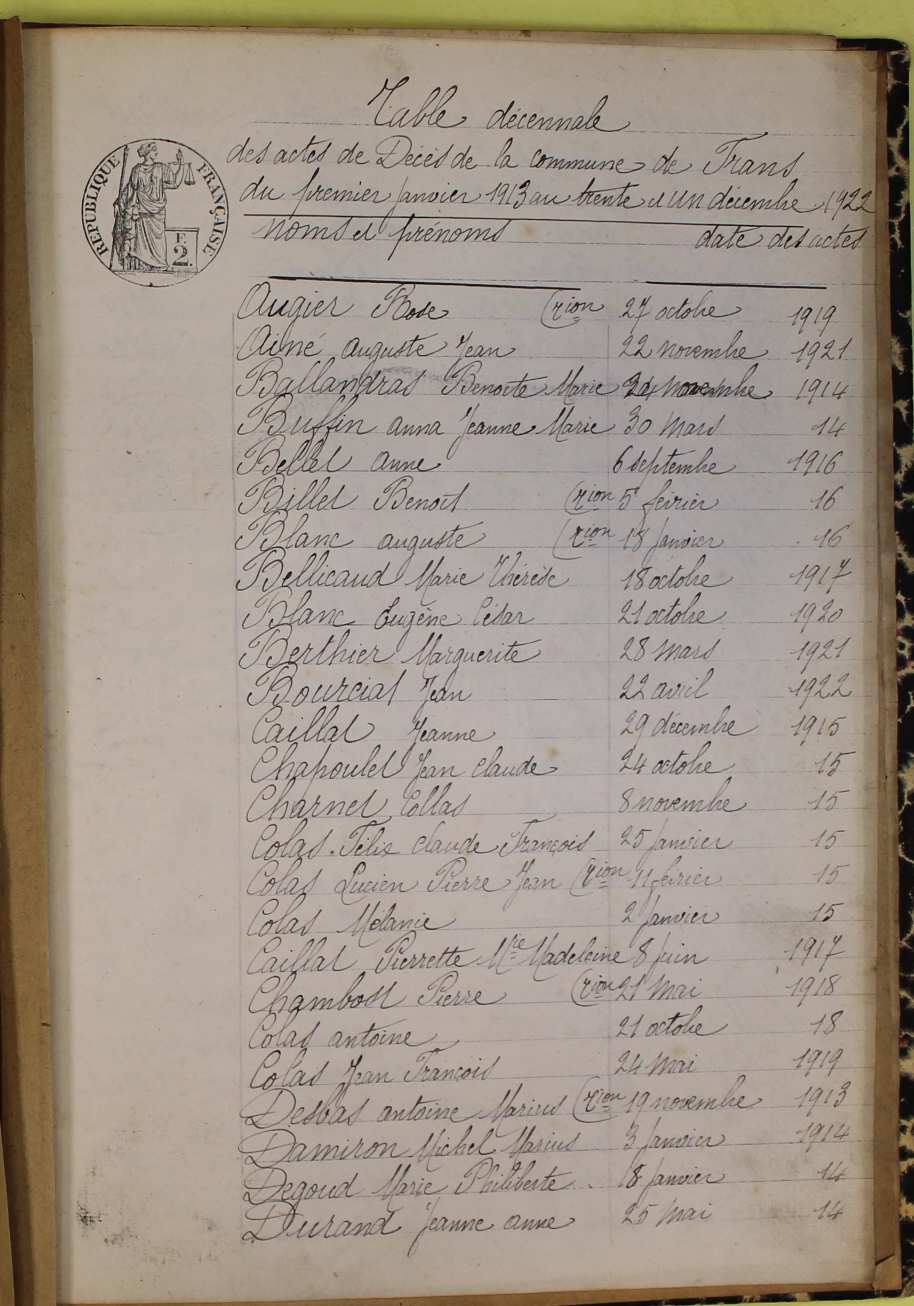 Table décennale
des actes de Décès de la commune de Trans
du premier janvier 1913 au trente et un décembre 1922
RÉPUBLIQUE FRANÇAISE
F.
2.
noms et prénoms date des actes
Augier Rose (con 27 octobre 1919
Aimé auguste Jean 22 novembre 1921
Ballandras Benoite Marie 24 novembre 1914
Buffin anna Jeanne Marie 30 Mars 14
Bellet anne 6 septembre 1916
Billet Benoit (ron 5 février 16
Blanc auguste (ron 18 janvier 16
Bellicaud Marie Thérèse 18 octobre 1917
Blanc Eugène César 21 octobre 1920
Berthier Marguerite 28 mars 1921
Bourciat Jean 22 avril 1922
Caillat Jeanne 29 décembre 1915
Chapoulet Jean claude 24 octobre 15
Charnet Collas 8 novembre 15
Colas Félix claude François 25 janvier 15
Colas Lucien Pierre Jean (ron 11 février 15
Colas Mélanie 2 janvier 15
Caillat Pierrette Mie Madeleine 8 juin 1917
Chambost Pierre (ron 21 Mai 1918
Colas antoine 21 octobre 18
Colas Jean François 24 Mai 1919
Desbas antoine Marius (ron 19 novembre 1913
Damiron Michel Marius 3 janvier 1914
Degoud Marie Philiberte 18 janvier 14
Durand Jeanne anne 25 Mai 14